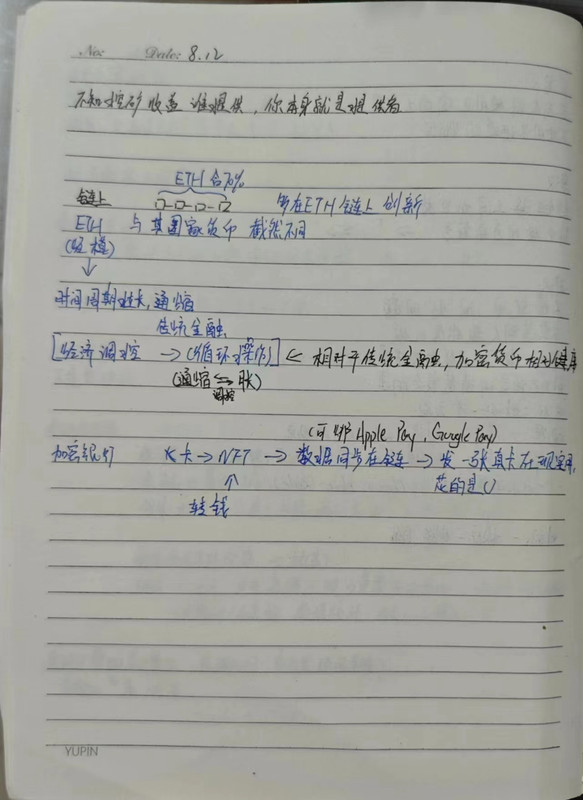 No: Date: 8.12
不知挖矿收益谁提供，你本身就是提供者
ETH占70%
链上 口-口-口-口 都在ETH链上创新
ETH 与其国家货币截然不同
(规模)
↓
时间周期延长，通缩
传统金融
[经济调控 → (循环操作)] ← 相对于传统金融，加密货币相对健康
(通缩 ⇆ 胀)
调控
(可绑 Apple Pay, Google Pay)
加密银行 K卡 → NFT → 数据同步在链 → 发一张真卡在现实用,
↑ 花的是U
转钱
YUPIN